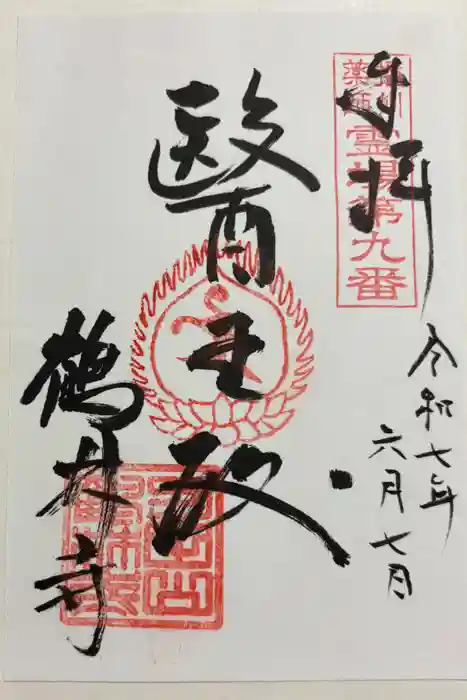 播州
薬師
霊場第九番
奉拝
令和七年
六月七日
醫王殿
鶴林寺